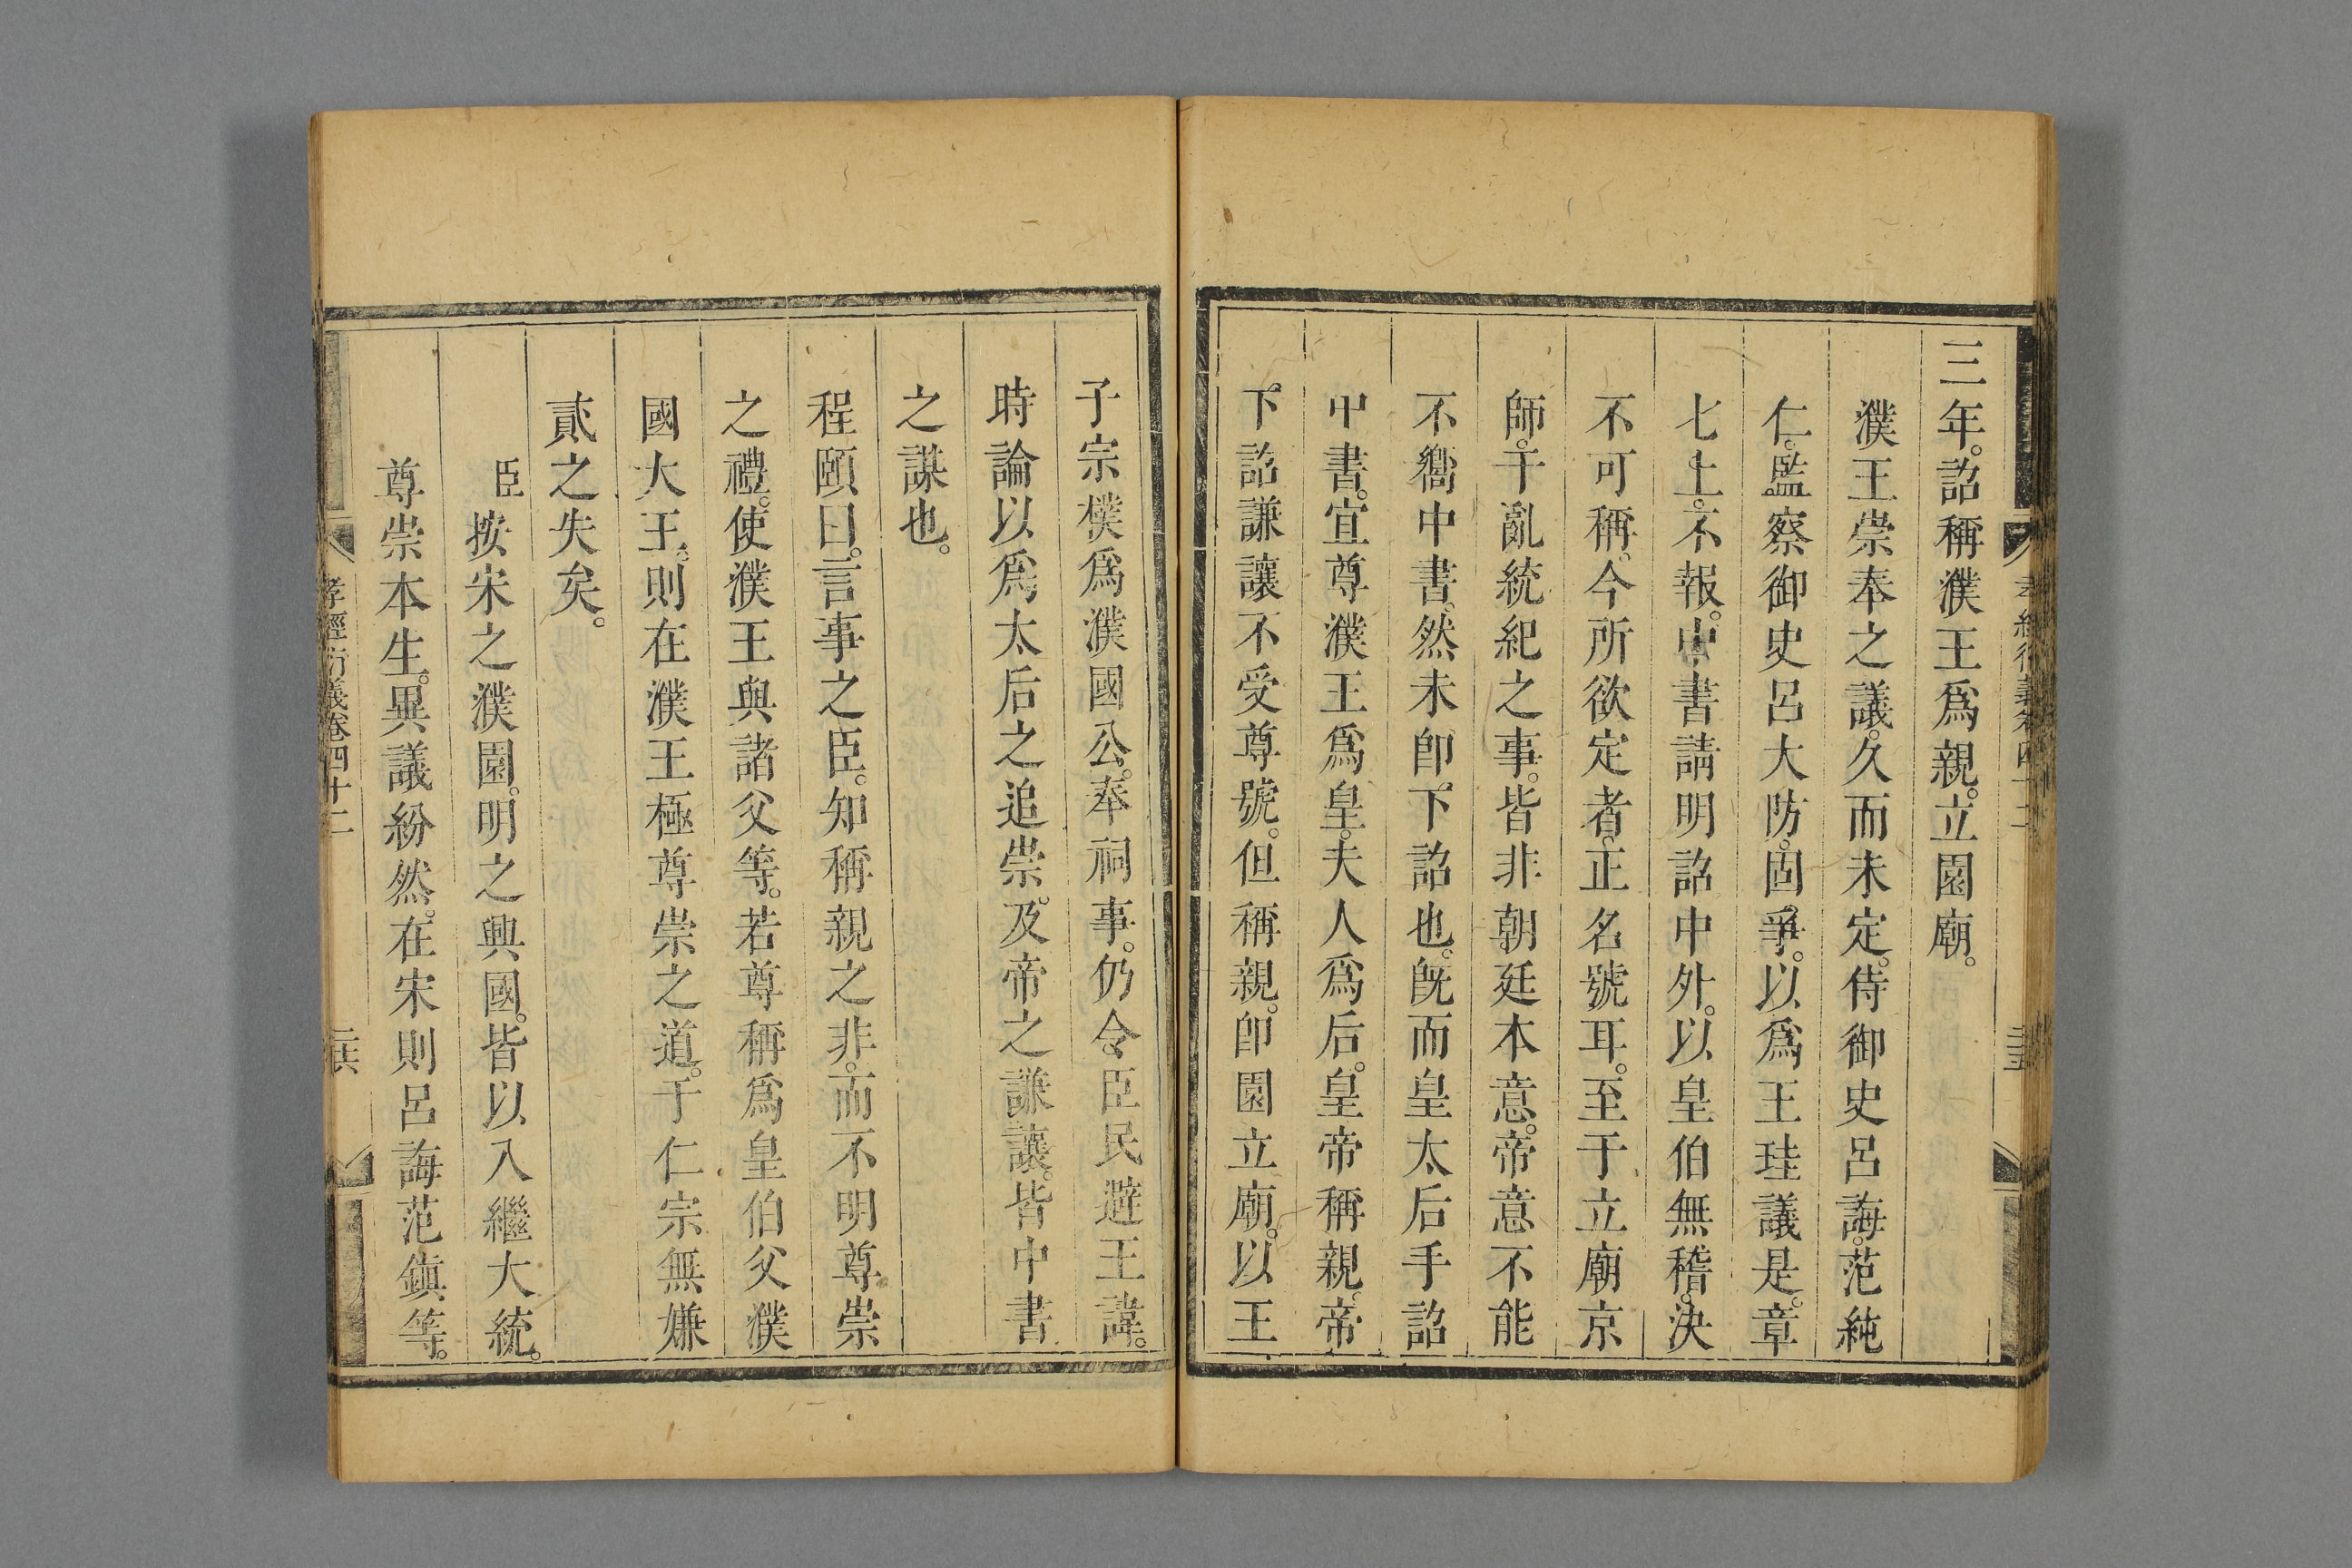 三年。詔稱濮王爲親。立園廟。
濮王崇奉之議。久而未定。侍御史呂誨。范純
仁。監察御史呂大防。固爭。以爲王珪議是。章
七上。不報。中書請明詔中外。以皇伯無稽。決
不可稱。今所欲定者。正名號耳。至于立廟京
師。干亂統紀之事。皆非朝廷本意。帝意不能
不嚮中書。然未卽下詔也。旣而皇太后手詔
中書。宜尊濮王爲皇。夫人爲后。皇帝稱親。帝
下詔謙讓不受尊號。但稱親。卽園立廟。以王
子宗樸爲濮國公。奉祠事。仍令臣民避王諱。
時論以爲太后之追崇。及帝之謙讓。皆中書
之謀也。
程頤曰。言事之臣。知稱親之非。而不明尊崇
之禮。使濮王與諸父等。若尊稱爲皇伯父濮
國大王。則在濮王極尊崇之道。于仁宗無嫌
貳之失矣。
臣按宋之濮園。明之興國。皆以入繼大統。
尊崇本生。異議紛然。在宋則呂誨范鎭等。
孝經衍義卷四十二